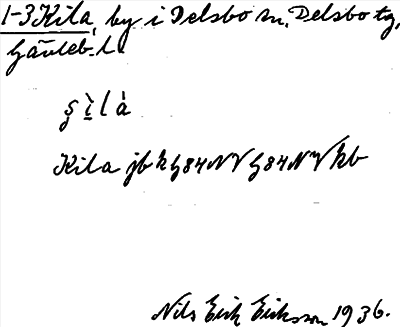 1-3 Kila, by i Delsbo sn, Delsbo tg,
Gävleb. l.
Kila jb k G84NV G84NV kb
Nils Erik Eriksson 1936.